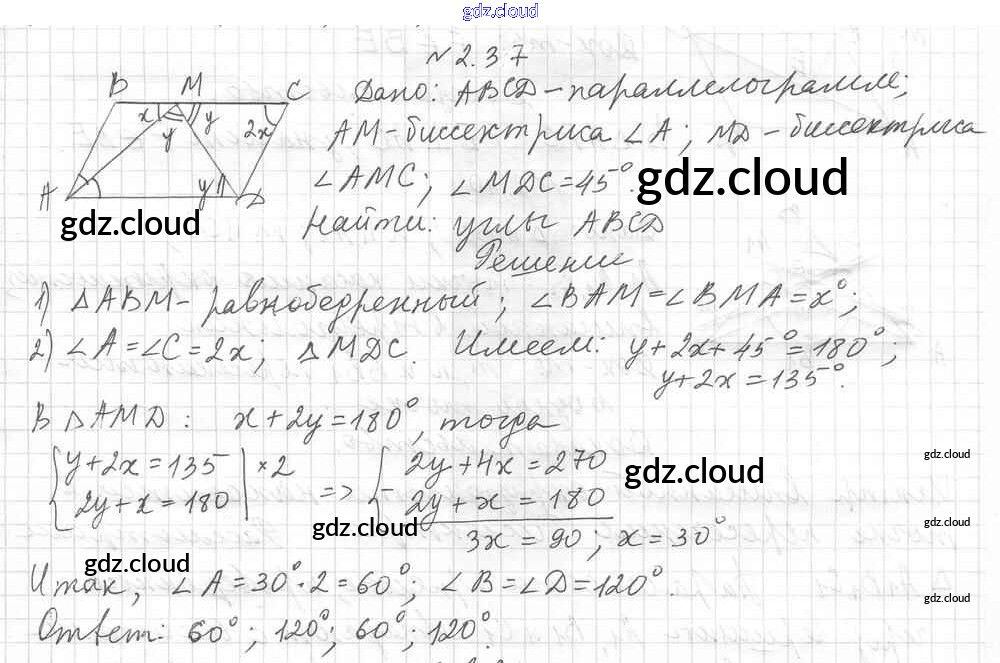 gdz.cloud
№ 2.37
B M C
x y 2x
y
A y D
Дано: ABCD – параллелограмм;
AM – биссектриса ∠A; MD – биссектриса
∠AMC; ∠MDC = 45°.
gdz.cloud
gdz.cloud
Найти: углы ABCD
Решение
1) △ABM – равнобедренный; ∠BAM = ∠BMA = x°;
2) ∠A = ∠C = 2x; △MDC. Имеем: y + 2x + 45° = 180°;
y + 2x = 135°.
В △AMD: x + 2y = 180°, тогда
{ y + 2x = 135 | × 2 => { 2y + 4x = 270
2y + x = 180 | 2y + x = 180
gdz.cloud
gdz.cloud
gdz.cloud
gdz.cloud
3x = 90; x = 30°
gdz.cloud
Итак, ∠A = 30° · 2 = 60°; ∠B = ∠D = 120°.
gdz.cloud
Ответ: 60°; 120°; 60°; 120°.